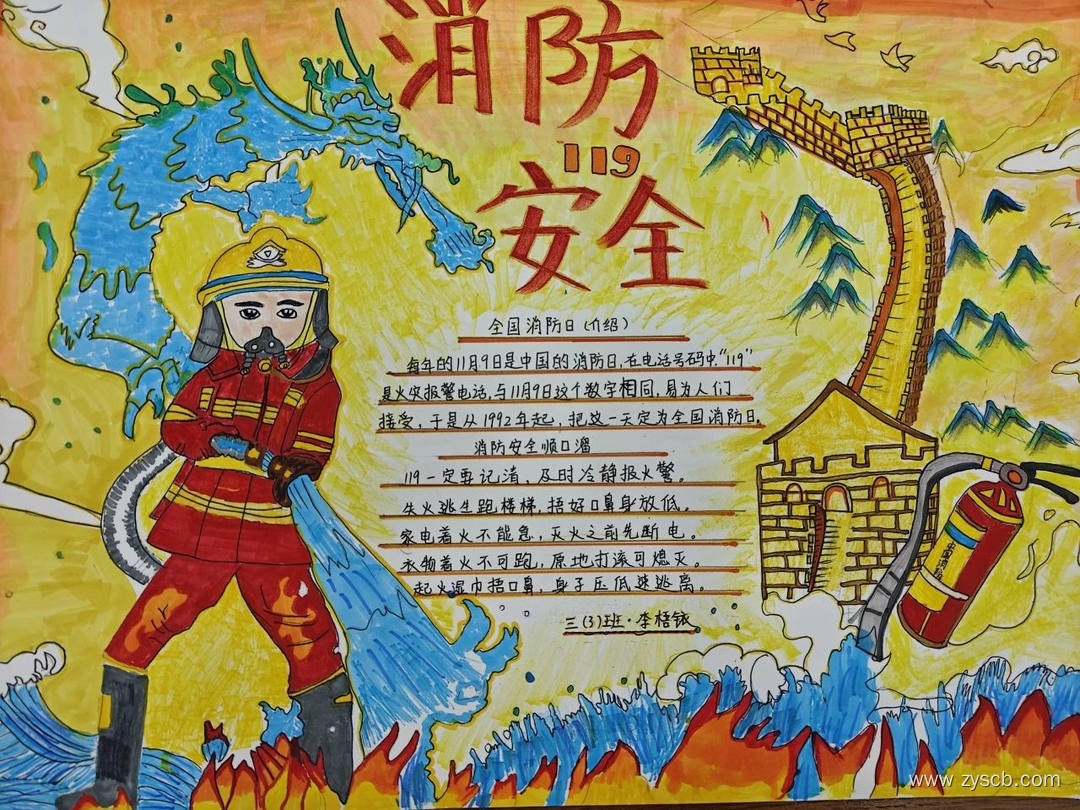 消防
119
安全
全国消防日(介绍)
每年的11月9日是中国的消防日,在电话号码中."119"
是火灾报警电话,与11月9日这个数字相同,易为人们
接受,于是从1992年起,把这一天定为全国消防日,
消防安全顺口溜
119一定要记清,及时冷静报火警。
失火逃生跑楼梯,捂好口鼻身放低。
家电着火不能急,灭火之前先断电。
衣物着火不可跑,原地打滚可熄灭。
起火湿巾捂口鼻,身子压低速逃离。
三(3)班·李梧
www.zyscb.com